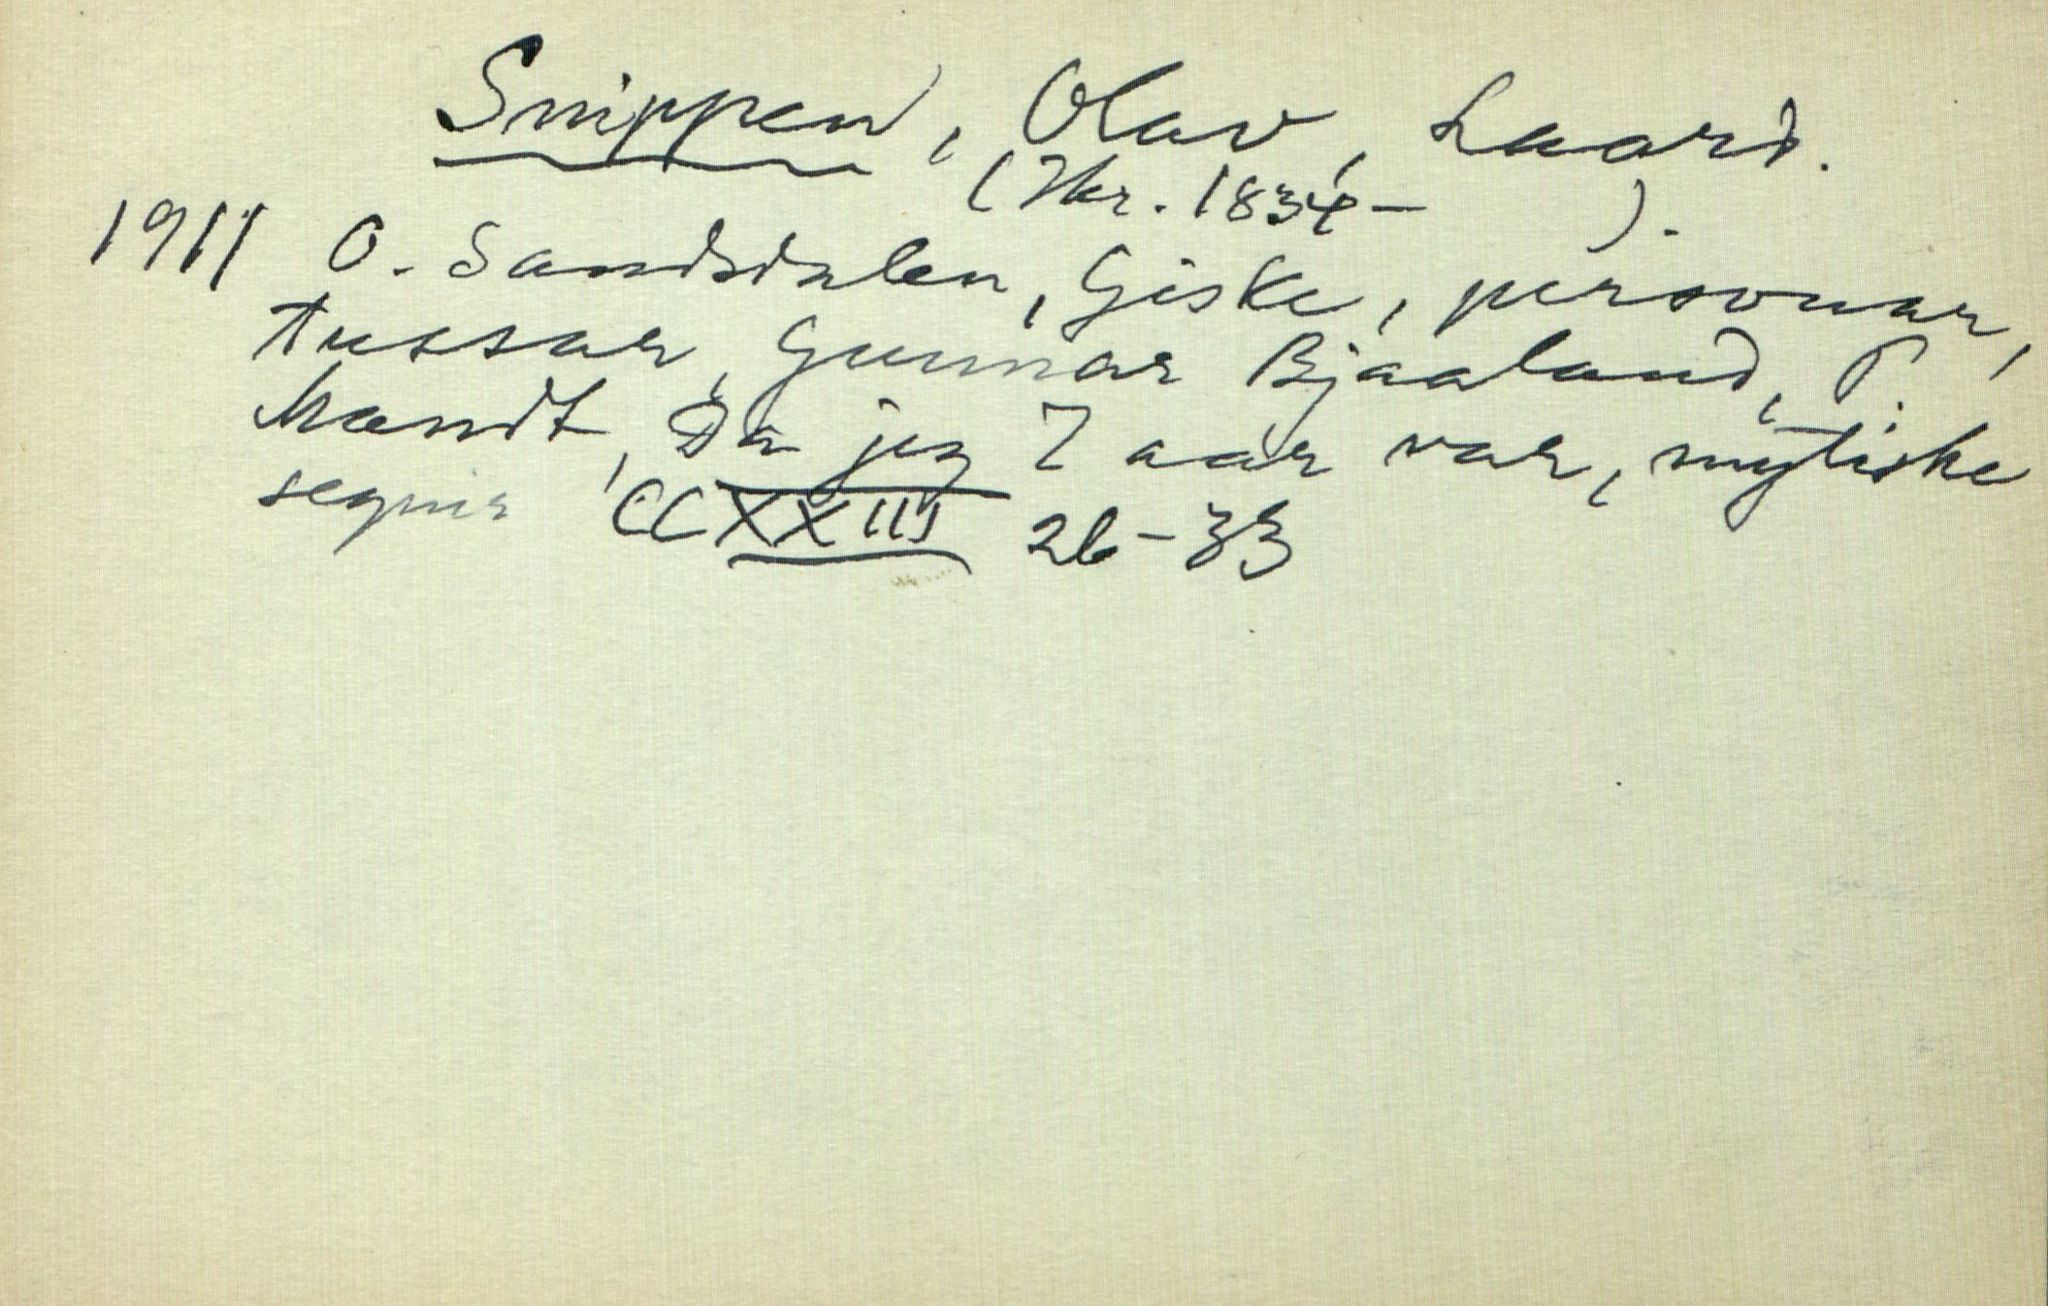 Snippen, Olav, Laard.
(Ikr. 1834- ).
1911 O. Sandsdalen, Giske, personar,
tussar, Gunnar Bjaaland, P.
Mandt, Då jeg 7 aar var, mytiske
segner CCXXIII 26-33